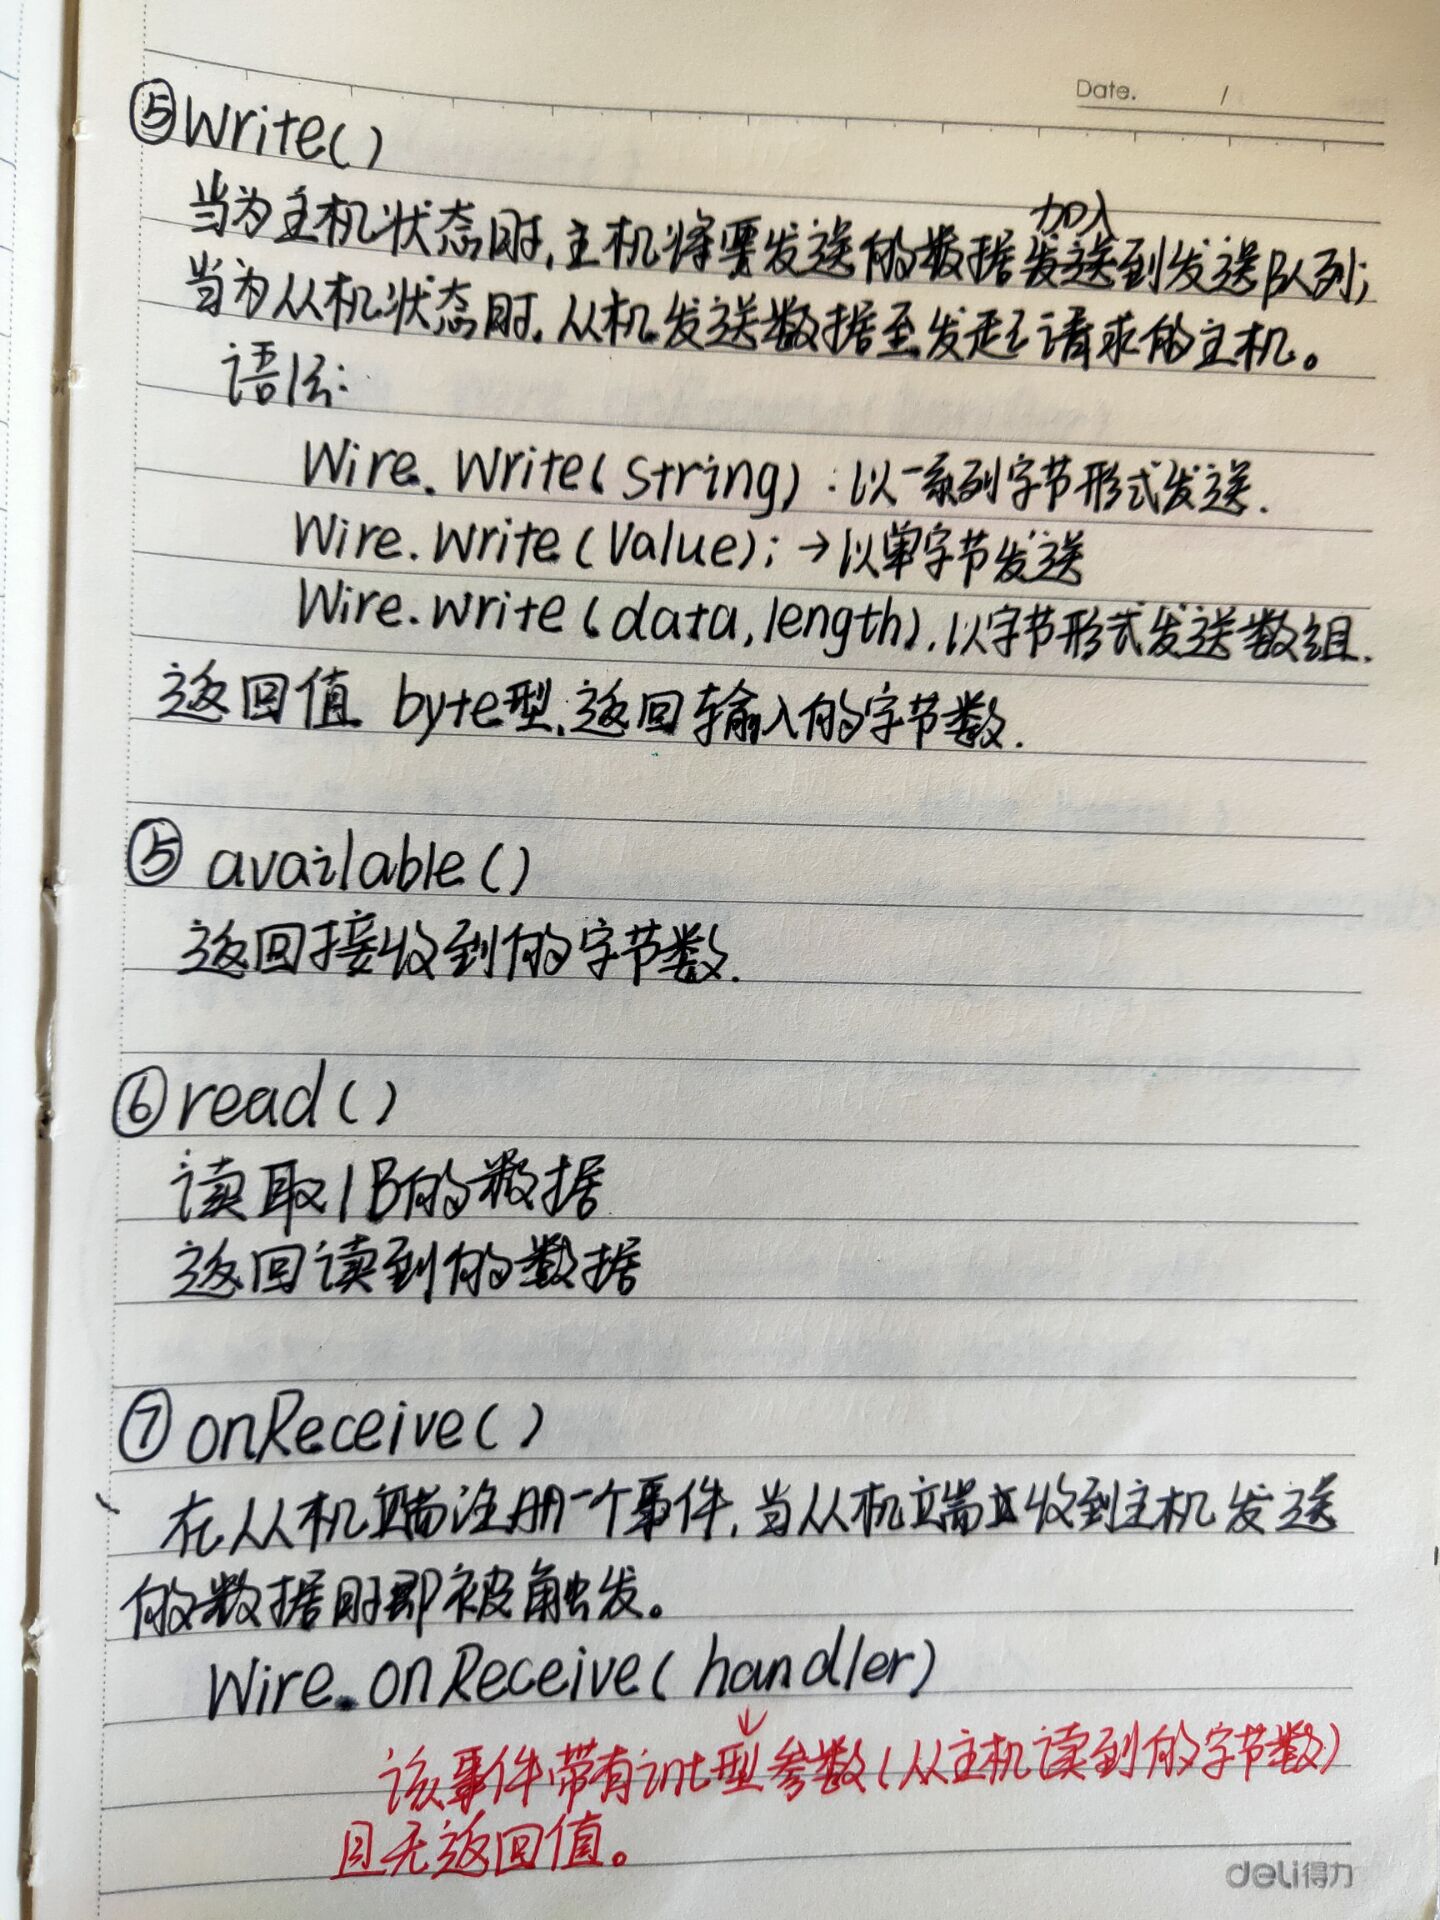 Date. /
⑤Write()
加入
当为主机状态时,主机将要发送的数据发送到发送队列;
当为从机状态时,从机发送数据至发起请求的主机。
语法:
Wire.Write(String):以一系列字节形式发送.
Wire.Write(Value);→以单字节发送
Wire.Write(data,length),以字节形式发送数组.
返回值 byte型,返回输入的字节数.
⑤ available()
返回接收到的字节数.
⑥read()
读取1B的数据
返回读到的数据
⑦onReceive()
在从机端注册一个事件,当从机端收到主机发送
的数据时即被触发。
Wire.onReceive(handler)
该事件带有int型参数(从主机读到的字节数)
且无返回值。
deli得力